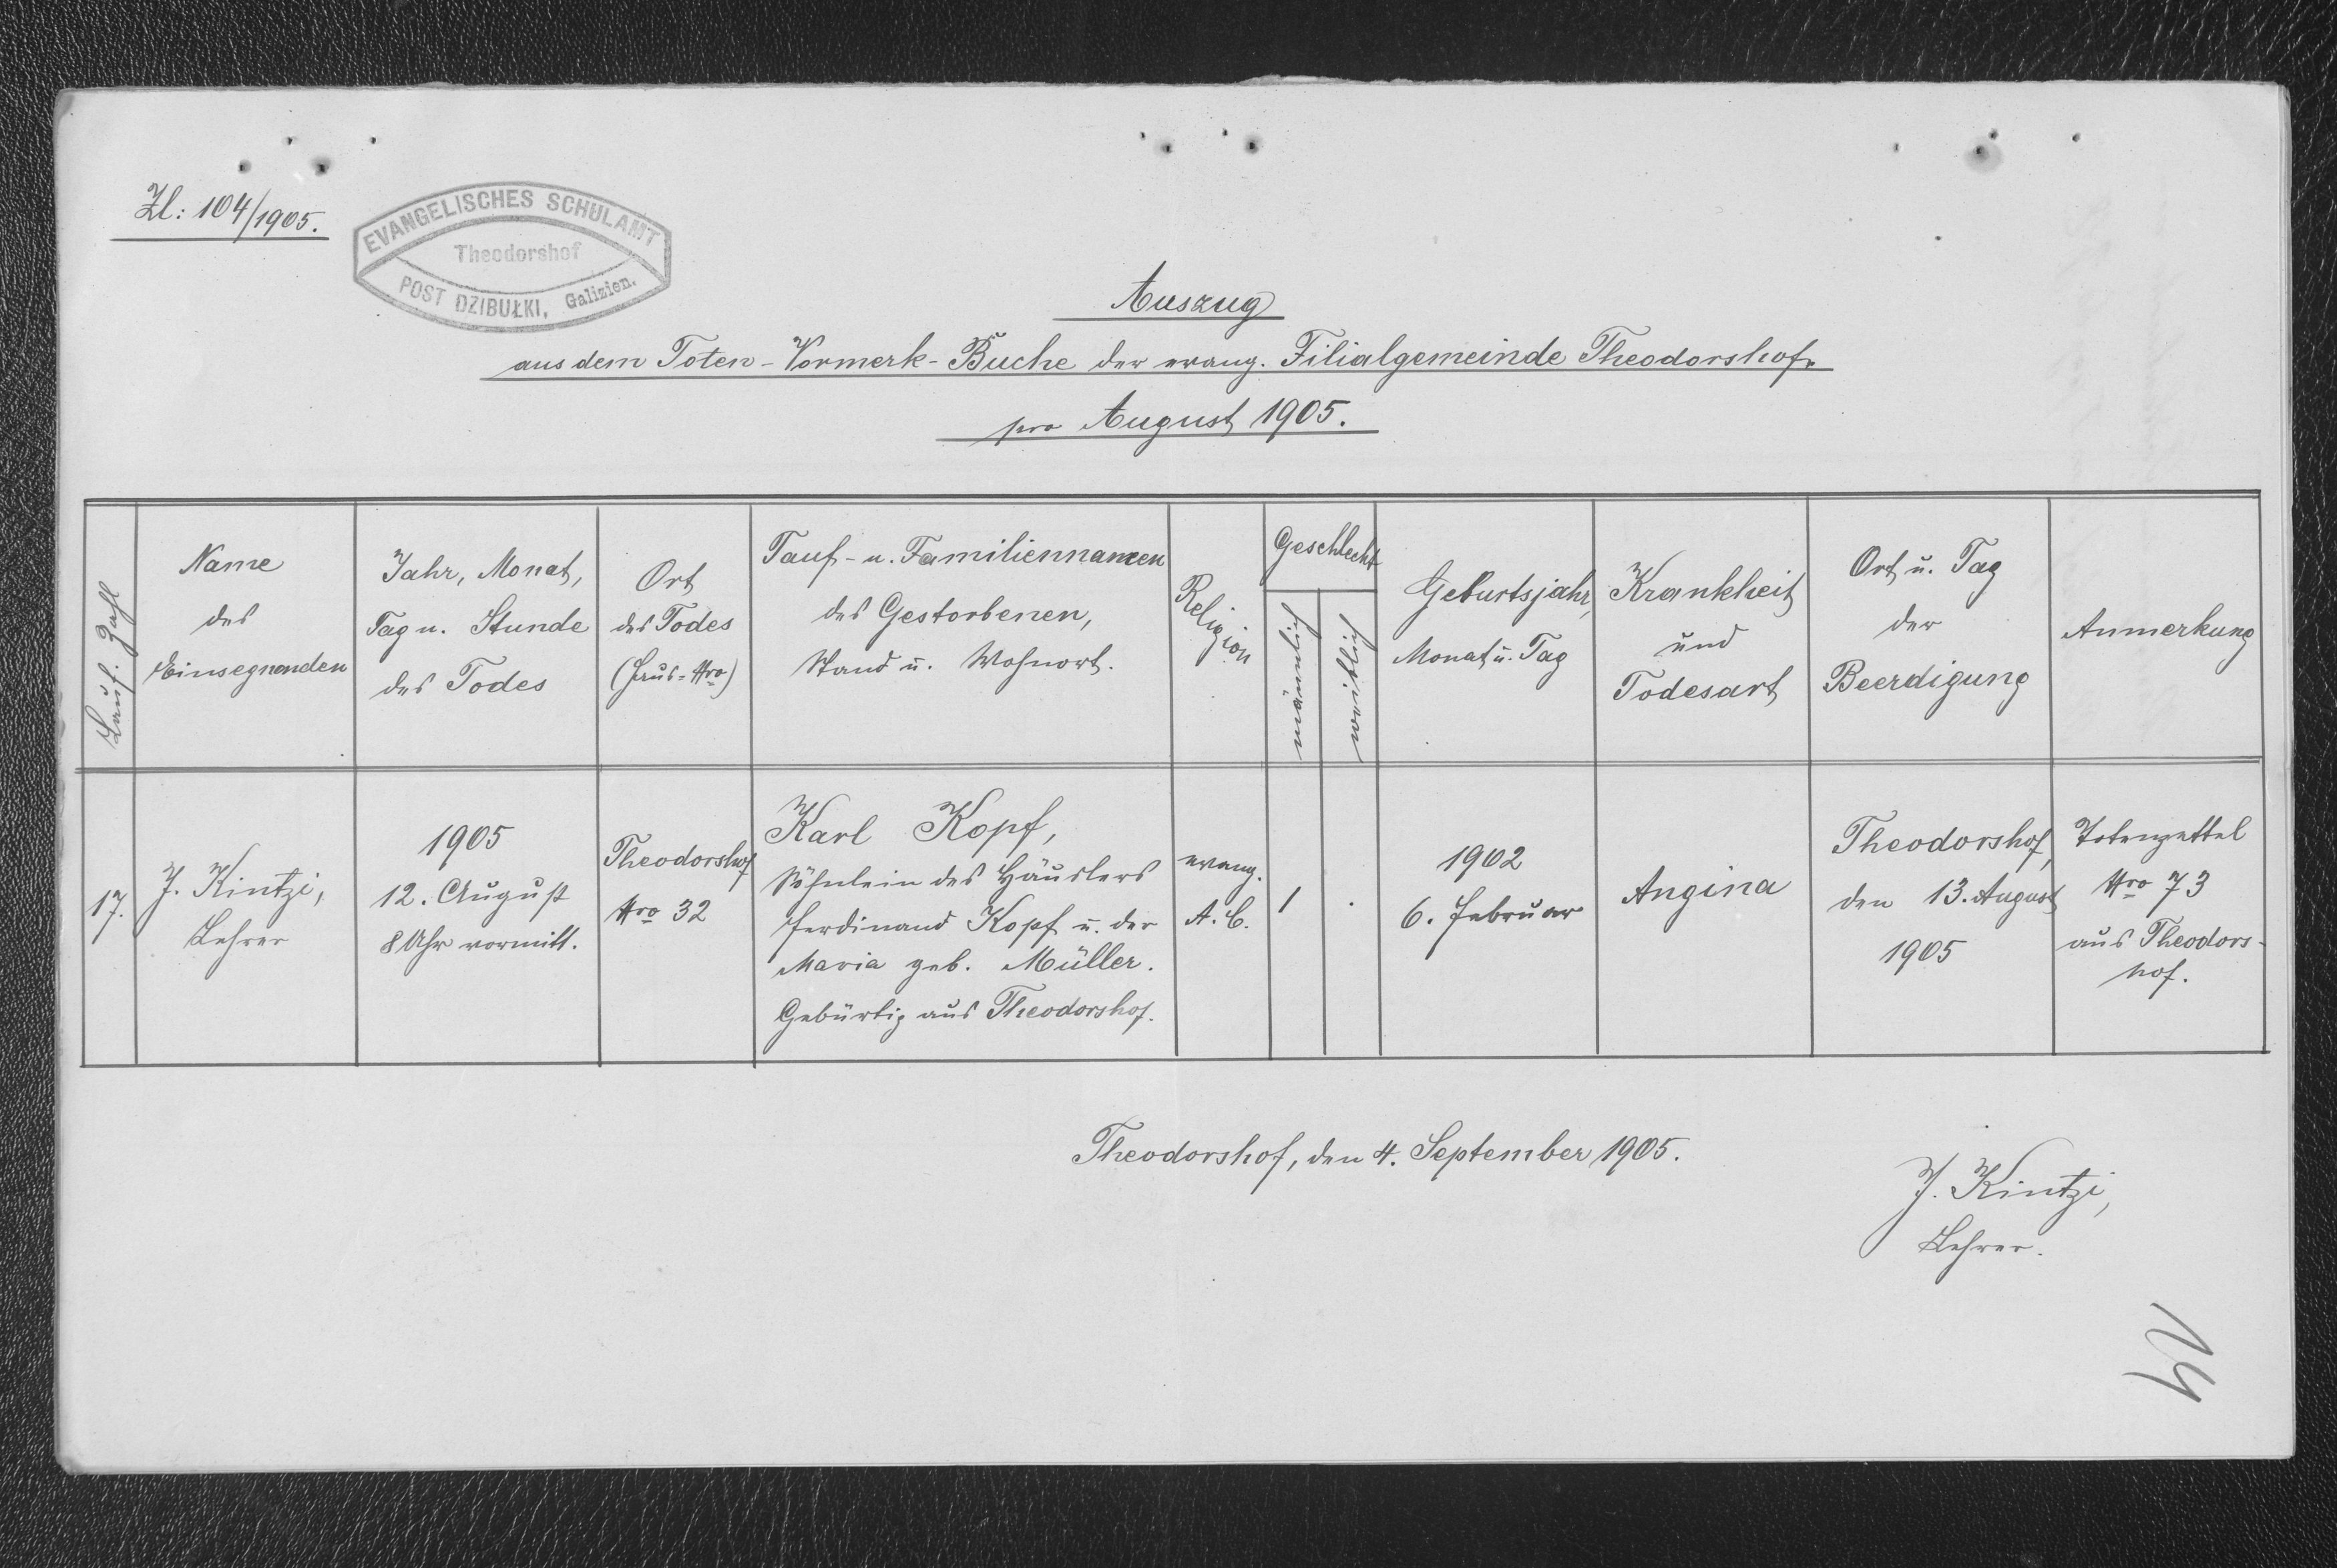 Zl: 104/1905.
EVANGELISCHES SCHULAMT
Theodorshof
POST DZIBUŁKI, Galizien.
Auszug
aus dem Toten-Vormerk-Buche der evang. Filialgemeinde Theodorshof
pro August 1905.
Lauf. Zahl
Name
des
Einsegnenden
Jahr, Monat,
Tag u. Stunde
des Todes
Ort
des Todes
(Haus-Nro)
Tauf- u. Familiennamen
des Gestorbenen,
Stand u. Wohnort.
Religion
Geschlecht
männlich
weiblich
Geburtsjahr,
Monat u. Tag
Krankheit
und
Todesart
Ort u. Tag
der
Beerdigung
Anmerkung
17.
J. Kintzi,
Lehrer
1905
12. August
8 Uhr vormitt.
Theodorshof
Nro 32
Karl Kopf,
Söhnlein des Häuslers
Ferdinand Kopf u. der
Maria geb. Müller.
Gebürtig aus Theodorshof.
evang.
A. C.
1
.
1902
6. Februar
Angina
Theodorshof,
den 13. August
1905
Totenzettel
Nro 73
aus Theodors-
hof.
Theodorshof, den 4. September 1905.
J. Kintzi,
Lehrer.